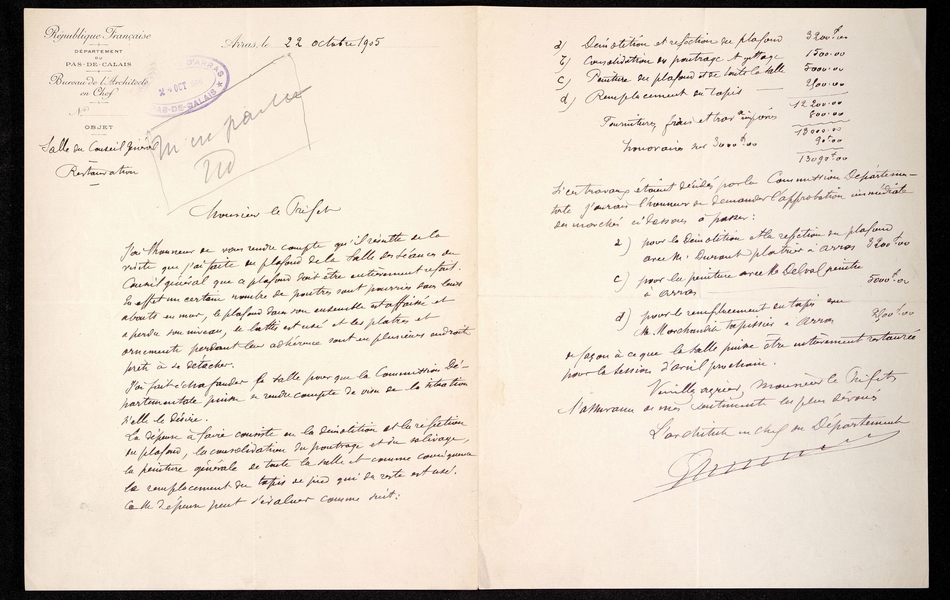 République Française
DÉPARTEMENT
DU
PAS-DE-CALAIS
Bureau de l'Architecte
en Chef
N°
OBJET
Salle du Conseil Général
Restauration
Arras, le 22 octobre 1905
D'ARRAS
2 OCT
PAS-DE-CALAIS
Monsieur le Préfet
J'ai l'honneur de vous rendre compte qu'il résulte de la
visite que j'ai faite du plafond de la salle des séances du
Conseil général que ce plafond doit être entièrement refait.
En effet un certain nombre de poutres sont pourries dans leurs
abouts en mur, le plafond dans son ensemble est affaissé et
a perdu son niveau, le lattis est usé et les plâtres et
ornements perdant leur adhérence sont en plusieurs endroits
prêts à se détacher.
J'ai fait échafauder la salle pour que la Commission Dé-
partementale puisse se rendre compte de visu de la situation
si elle le désire.
La dépense à faire consiste en la démolition et la réfection
du plafond, la consolidation du poutrage et du solivage,
la peinture générale de toute la salle et comme conséquence
le remplacement du tapis de pied qui du reste est usé.
Cette dépense peut s'évaluer comme suit:
a) Démolition et réfection du plafond 3200f.00
b) Consolidation du poutrage et gîtage 1500.00
c) Peinture du plafond et de toute la salle 5000.00
d) Remplacement du tapis 2500.00
12200.00
Fournitures, frais et trav. imprévus 800.00
13000.00
honoraires sur 3000f.00 90f.00
13090f.00
Si ces travaux étaient décidés par la Commission Départemen-
tale j'aurais l'honneur de demander l'approbation immédiate
des marchés ci-dessous à passer:
a) pour la démolition et la réfection du plafond
avec M. Durant plâtrier à Arras 3200f.00
c) pour la peinture avec M. Delval peintre
à Arras 5000f.00
d) pour le remplacement du tapis avec
M. Marchandise tapissier à Arras 2500f.00
de façon à ce que la salle puisse être entièrement restaurée
pour la session d'avril prochain.
Veuillez agréer, Monsieur le Préfet,
l'assurance de mes sentiments les plus dévoués
L'architecte en chef du Département